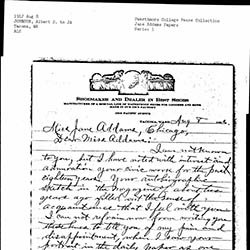 1912 Aug 8
JOHNSON, Albert D. to JA
Tacoma, WA
ALS
Swarthmore College Peace Collection
Jane Addams Papers
Series 1
Shoemaker and Dealer in Best Shoes
Tacoma, Wash. Aug 8
Miss Jane Addams, Chicago,
Dear Miss Addams:
I am not known
to you, but I have noted with interest and
admiration your nice move for the past
eighteen years. Your autobiographic
sketch in the magazines about two
years ago filled out the sense of
acquaintance that I feel with you and
I can not refrain now from writing you
these lines to tell you of my pain and
disappointment when I saw your
portrait in the daily paper as one